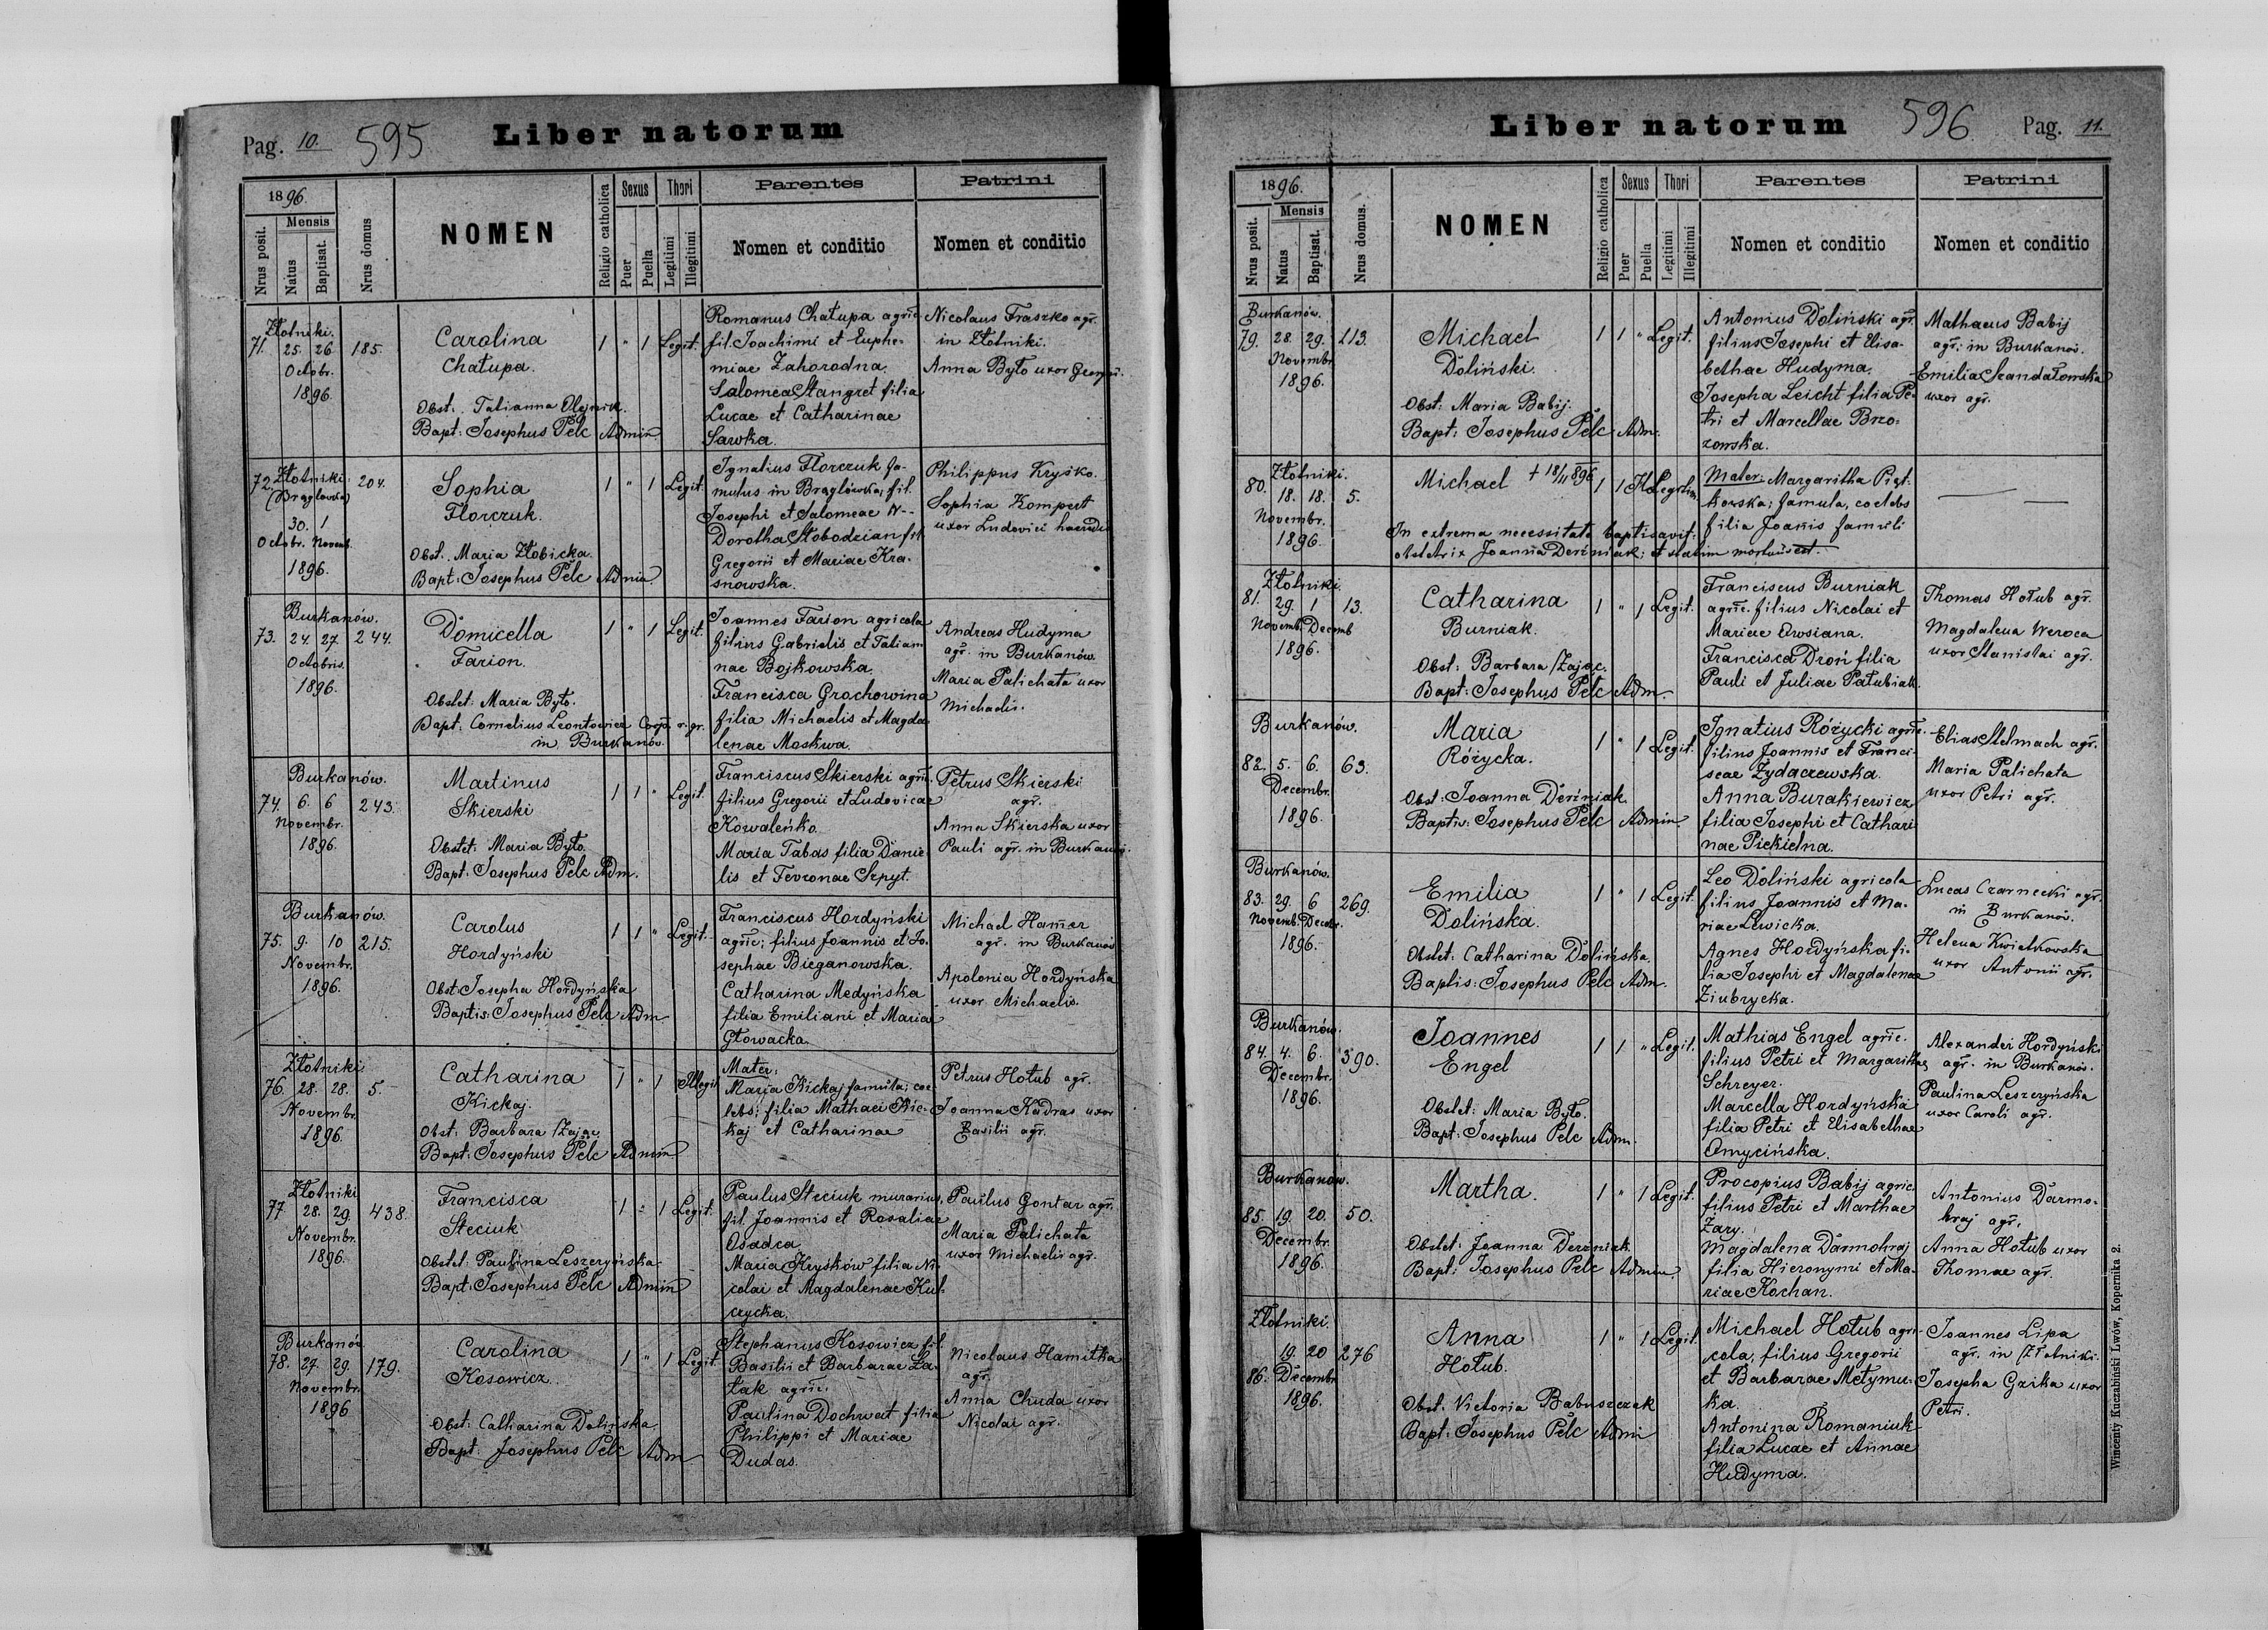 Pag. 10. 595 Liber natorum
1896.
Nrus posit.
Mensis
Natus
Baptisat.
Nrus domus
NOMEN
Religio catholica
Sexus
Puer
Puella
Thori
Legitimi
Illegitimi
Parentes
Nomen et conditio
Patrini
Nomen et conditio
Złotniki.
71. 25. 26. 185.
Octobr.
1896.
Carolina
Chałupa.
Obst. Tatianna Olejnik.
Bapt: Josephus Pelc Admin.
1 " 1 Legit.
Romanus Chałupa agric.
fil. Joachimi et Euphe-
miae Zahorodna.
Salomea Stangret filia
Lucae et Catharinae
Sawka.
Nicolaus Fraszko agr.
in Złotniki.
Anna Byto uxor
72. Złotniki 204.
30. 1
Octobr. Novemb.
1896.
Sophia
Florczuk.
Obst. Maria Złobicka.
Bapt: Josephus Pelc Admin.
1 " 1 Legit.
Ignatius Florczuk fa-
mulus in fil.
Josephi et Salomeae N--
Dorotha Słobodzian fil.
Gregorii et Mariae Kra-
snowska.
Philippus Kryśko.
Sophia Kompert
uxor Ludovici
Burkanów.
73. 24. 27. 244.
Octobris.
1896.
Domicella
Farion.
Obstet: Maria Byto.
Bapt: Cornelius Leontowicz Coop. r. gr.
in Burkanów
1 " 1 Legit.
Joannes Farion agricola
filius Gabrielis et Tatian-
nae Bojkowska.
Francisca Grochowina
filia Michaelis et Magda-
lenae Moskwa.
Andreas Hudyma
agr. in Burkanów.
Maria Palichata uxor
Michaelis.
Burkanów.
74. 6. 6 243.
Novembr.
1896.
Martinus
Skierski
Obstet: Maria Byto.
Bapt: Josephus Pelc Adm.
1 1 " Legit.
Franciscus Skierski agric.
filius Gregorii et Ludovicae
Kowaleńko.
Maria Tabas filia Danie-
lis et Fevronae Szpyt.
Petrus Skierski
agr.
Anna Skierska uxor
Pauli agr. in Burkanów.
Burkanów.
75. 9. 10 215.
Novembr.
1896.
Carolus
Hordyński
Obst: Josepha Hordyńska
Baptis: Josephus Pelc Adm
1 1 " Legit.
Franciscus Hordyński
agric; filius Joannis et Jo-
sephae Bieganowska.
Catharina Medyńska
filia Emiliani et Mariae
Głowacka.
Michael Hamer
agr. in Burkanów
Apolonia Hordyńska
uxor Michaelis.
Złotniki
76. 28. 28. 5.
Novembr.
1896.
Catharina
Kickaj.
Obst: Barbara Zając.
Bapt: Josephus Pelc Admin.
1 " 1 Illegit
Mater:
Maria Kickaj famula; coe-
lebs; filia Mathaei Kic-
kaj et Catharinae
Petrus Hołub agr.
Joanna Kadras uxor
Basilii agr.
Złotniki
77 28. 29. 438.
Novembr.
1896.
Francisca
Steciuk
Obstet: Paulina Leszczyńska
Bapt: Josephus Pelc Admin
1 " 1 Legit.
Paulus Steciuk murarius,
fil. Joannis et Rosaliae
Osadca
Maria Kryśków filia Ni-
colai et Magdalenae Kul-
czycka.
Paulus Gontar agr.
Maria Palichata
uxor Michaelis agr.
Burkanów
78. 27. 29. 179.
Novembr.
1896
Carolina
Kosowicz.
Obst: Catharina Dolińska
Bapt: Josephus Pelc Adm
1 " 1 Legit
Stephanus Kosowicz fil.
Basilii et Barbarae Ła-
tak agric.
Paulina Dochwat filia
Philippi et Mariae
Dudas.
Nicolaus Hamitka
agr.
Anna Chuda uxor
Nicolai agr.
Liber natorum 596 Pag. 11.
1896.
Nrus posit.
Mensis
Natus
Baptisat.
Nrus domus.
NOMEN
Religio catholica
Sexus
Puer
Puella
Thori
Legitimi
Illegitimi
Parentes
Nomen et conditio
Patrini
Nomen et conditio
Burkanów.
79. 28. 29. 213.
Novembr
1896.
Michael
Doliński.
Obst: Maria Babij.
Bapt: Josephus Pelc Adm.
1 1 " Legit.
Antonius Doliński agr.
filius Josephi et Elisa-
bethae Hudyma.
Josepha Leicht filia Pe-
tri et Marcellae Brzo-
zowska.
Mathaeus Babij
agr. in Burkanów.
Emilia
uxor agr.
Złotniki.
80. 18. 18. 5.
Novembr.
1896.
Michael + 18/11 896
In extrema necessitate baptisavit:
obstetrix Joanna Derżniak; et statim mortuus est.
1 1
Mater: Margaritha Piąt-
kowska; famula, coelebs
filia Joannis famuli
Złotniki.
81. 29. 1 13.
Novemb. Decemb
1896.
Catharina
Burniak.
Obst: Barbara Zając.
Bapt: Josephus Pelc Adm.
1 " 1 Legit.
Franciscus Burniak
agric. filius Nicolai et
Mariae Owsiana.
Francisca Droń filia
Pauli et Juliae Patubiak.
Thomas Hołub agr.
Magdalena Weroca
uxor Stanislai agr.
Burkanów.
82. 5. 6. 63.
Decembr.
1896.
Maria
Różycka.
Obst: Joanna Derżniak.
Baptis: Josephus Pelc Admin
1 " 1 Legit.
Ignatius Różycki agric.
filius Joannis et Franci-
scae Żydaczewska.
Anna Burakiewicz
filia Josephi et Cathari-
nae Piekielna.
Elias Stelmach agr.
Maria Palichata
uxor Petri agr.
Burkanów.
83. 29. 6 269.
Novemb. Decebr.
1896.
Emilia
Dolińska.
Obstet: Catharina Dolińska.
Baptis: Josephus Pelc Adm.
1 " 1 Legit.
Leo Doliński agricola
filius Joannis et Ma-
riae Lewicka.
Agnes Hordyńska fi-
lia Josephi et Magdalenae
Ziubrycka.
Lucas Czarnecki agr.
in Burkanów.
Helena Kwiatkowska
uxor Antonii agr.
Burkanów.
84. 4. 6. 390.
Decembr.
1896.
Joannes
Engel
Obstet: Maria Byto.
Bapt: Josephus Pelc Adm.
1 1 " Legit.
Mathias Engel agric.
filius Petri et Margarithae
Schreyer.
Marcella Hordyńska
filia Petri et Elisabethae
Omycińska.
Alexander Hordyński
agr. in Burkanów.
Paulina Leszczyńska
uxor Caroli agr.
Burkanów.
85. 19. 20. 50.
Decembr.
1896.
Martha.
Obstet: Joanna Derzniak.
Bapt: Josephus Pelc Admin.
1 " 1 Legit.
Procopius Babij agric.
filius Petri et Marthae
Zary.
Magdalena Darmohraj
filia Hieronymi et Ma-
riae Kochan.
Antonius Darmo-
hraj agr.
Anna Hołub uxor
Thomae agr.
Złotniki.
19. 20 276
86. Decembr
1896.
Anna
Hołub.
Obst. Victoria Babuszczak
Bapt: Josephus Pelc Admin
1 " 1 Legit.
Michael Hołub agri-
cola, filius Gregorii
et Barbarae Metymu-
ka.
Antonina Romaniuk
filia Lucae et Annae
Hudyma.
Joannes Lipa
agr. in Złotniki.
Josepha Gzika uxor
Petri.
Wincenty Kuczabiński Lwów, Kopernika 2.